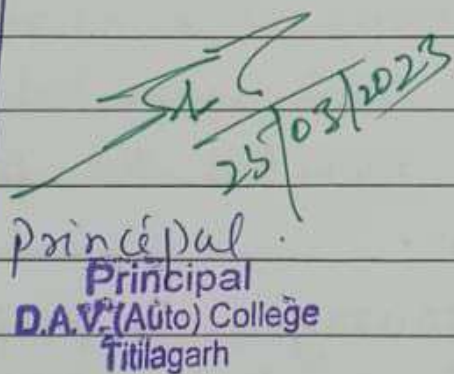 25/03/2023
Principal.
Principal
D.A.V. (Auto) College
Titilagarh